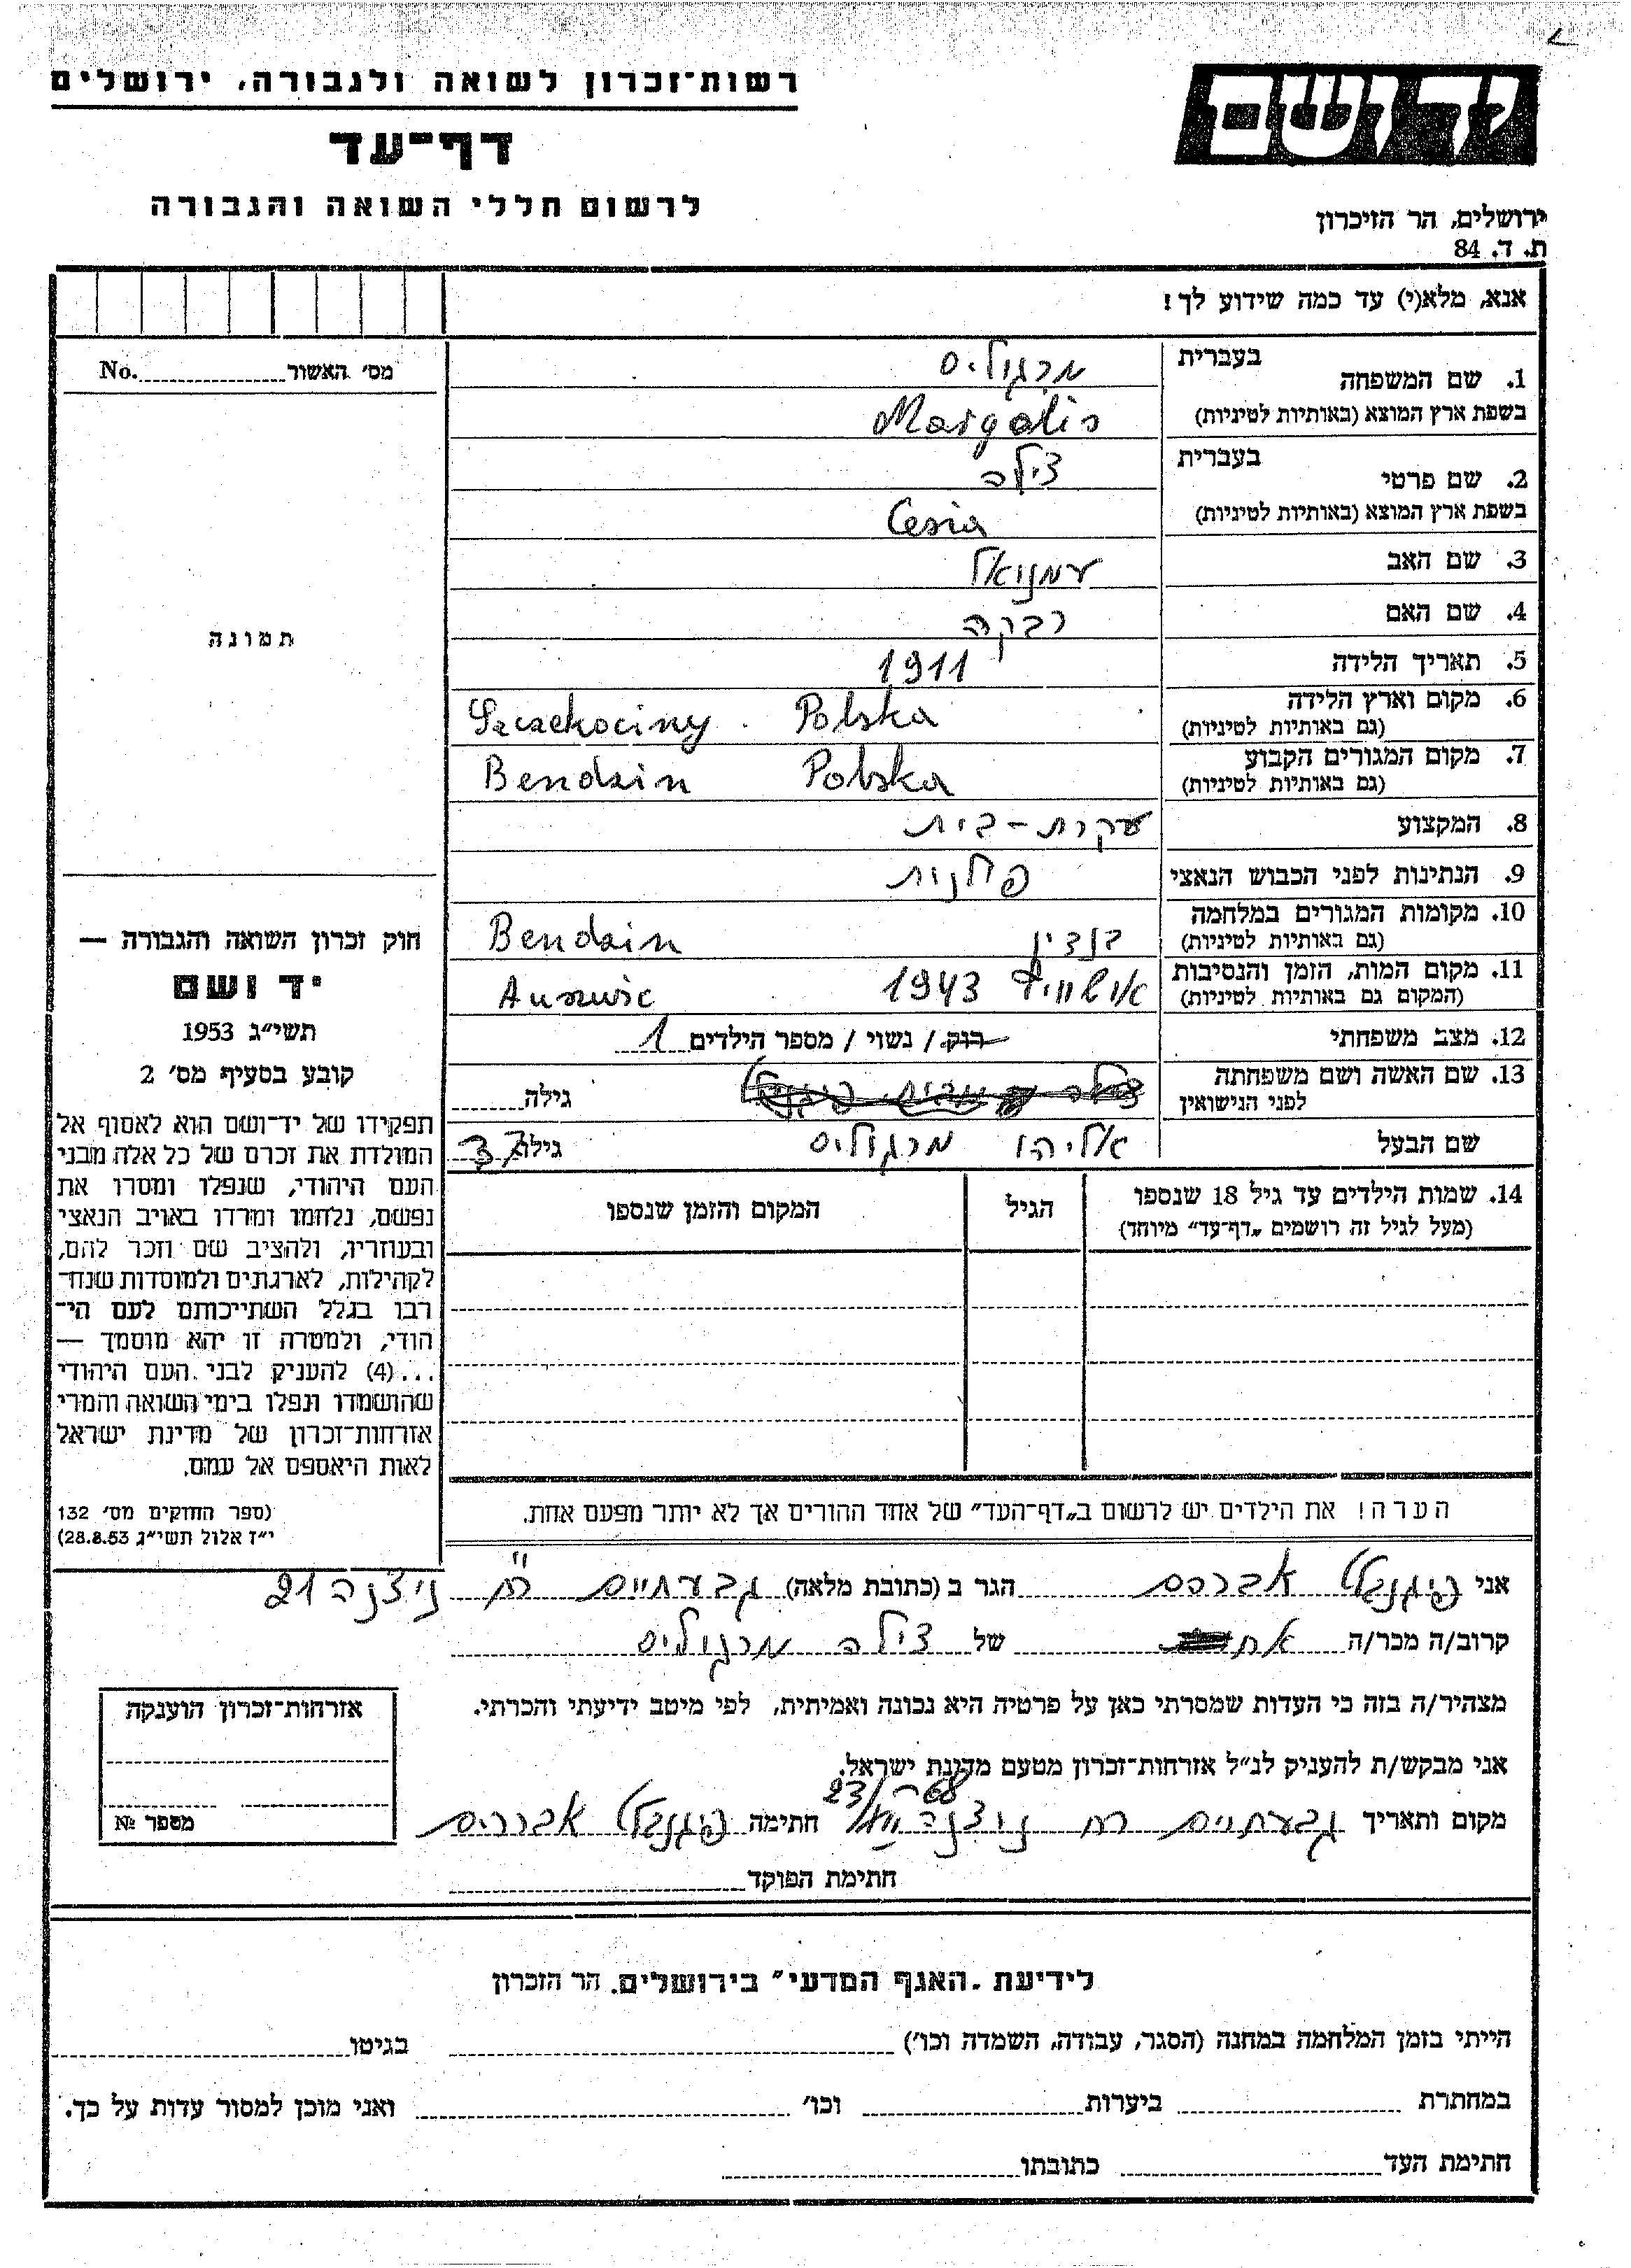 רשות־זכרון לשואה ולגבורה, ירושלים
ידושם
דף־עד
לרשום חללי השואה והגבורה
ירושלים, הר הזיכרון
ת. ד. 84
אנא, מלא(י) עד כמה שידוע לך!
מס׳ האשור No.
בעברית
1. שם המשפחה מרגוליס
בשפת ארץ המוצא (באותיות לטיניות) Margolis
בעברית
2. שם פרטי צילה
בשפת ארץ המוצא (באותיות לטיניות) Cesia
3. שם האב עמנואל
4. שם האם רבקה
5. תאריך הלידה 1911
6. מקום וארץ הלידה Szczekociny. Polska
(גם באותיות לטיניות)
7. מקום המגורים הקבוע Bendzin Polska
(גם באותיות לטיניות)
8. המקצוע עקרת-בית
9. הנתינות לפני הכבוש הנאצי פולנית
10. מקומות המגורים במלחמה בנדין Bendzin
(גם באותיות לטיניות)
11. מקום המות, הזמן והנסיבות אושוויץ 1943 Auszwic
(המקום גם באותיות לטיניות)
12. מצב משפחתי רוק / נשוי / מספר הילדים 1
13. שם האשה ושם משפחתה
לפני הנישואין גילה
שם הבעל אליהו מרגוליס גילו 37
14. שמות הילדים עד גיל 18 שנספו הגיל המקום והזמן שנספו
(מעל לגיל זה רושמים „דף־עד״ מיוחד)
תמונה
חוק זכרון השואה והגבורה —
יד ושם
תשי״ג 1953
קובע בסעיף מס׳ 2
תפקידו של יד־ושם הוא לאסוף אל
המולדת את זכרם של כל אלה מבני
העם היהודי, שנפלו ומסרו את
נפשם, נלחמו ומרדו באויב הנאצי
ובעוזריו, ולהציב שם וזכר להם,
לקהילות, לארגונים ולמוסדות שנח־
רבו בגלל השתייכותם לעם הי־
הודי, ולמטרה זו יהא מוסמך —
...(4) להעניק לבני העם היהודי
שהושמדו ונפלו בימי השואה והמרי
אזרחות־זכרון של מדינת ישראל
לאות היאספם אל עמם.
(ספר החוקים מס׳ 132
י״ז אלול תשי״ג 28.8.53)
הערה! את הילדים יש לרשום ב„דף־העד״ של אחד ההורים אך לא יותר מפעם אחת.
אני פיגנבלט אברהם הגר ב (כתובת מלאה) גבעתיים רח ניצנה 21
קרוב/ה מכר/ה אח של צילה מרגוליס
מצהיר/ה בזה כי העדות שמסרתי כאן על פרטיה היא נכונה ואמיתית, לפי מיטב ידיעתי והכרתי.
אני מבקש/ת להעניק לנ״ל אזרחות־זכרון מטעם מדינת ישראל.
מקום ותאריך גבעתיים רח ניצנה חתימה פיגנבלט אברהם
חתימת הפוקד
אזרחות־זכרון הוענקה
מספר №
לידיעת „האגף המדעי״ בירושלים, הר הזכרון
הייתי בזמן המלחמה במחנה (הסגר, עבודה, השמדה וכו׳) בגיטו
במחתרת ביערות וכו׳ ואני מוכן למסור עדות על כך.
חתימת העד כתובתו